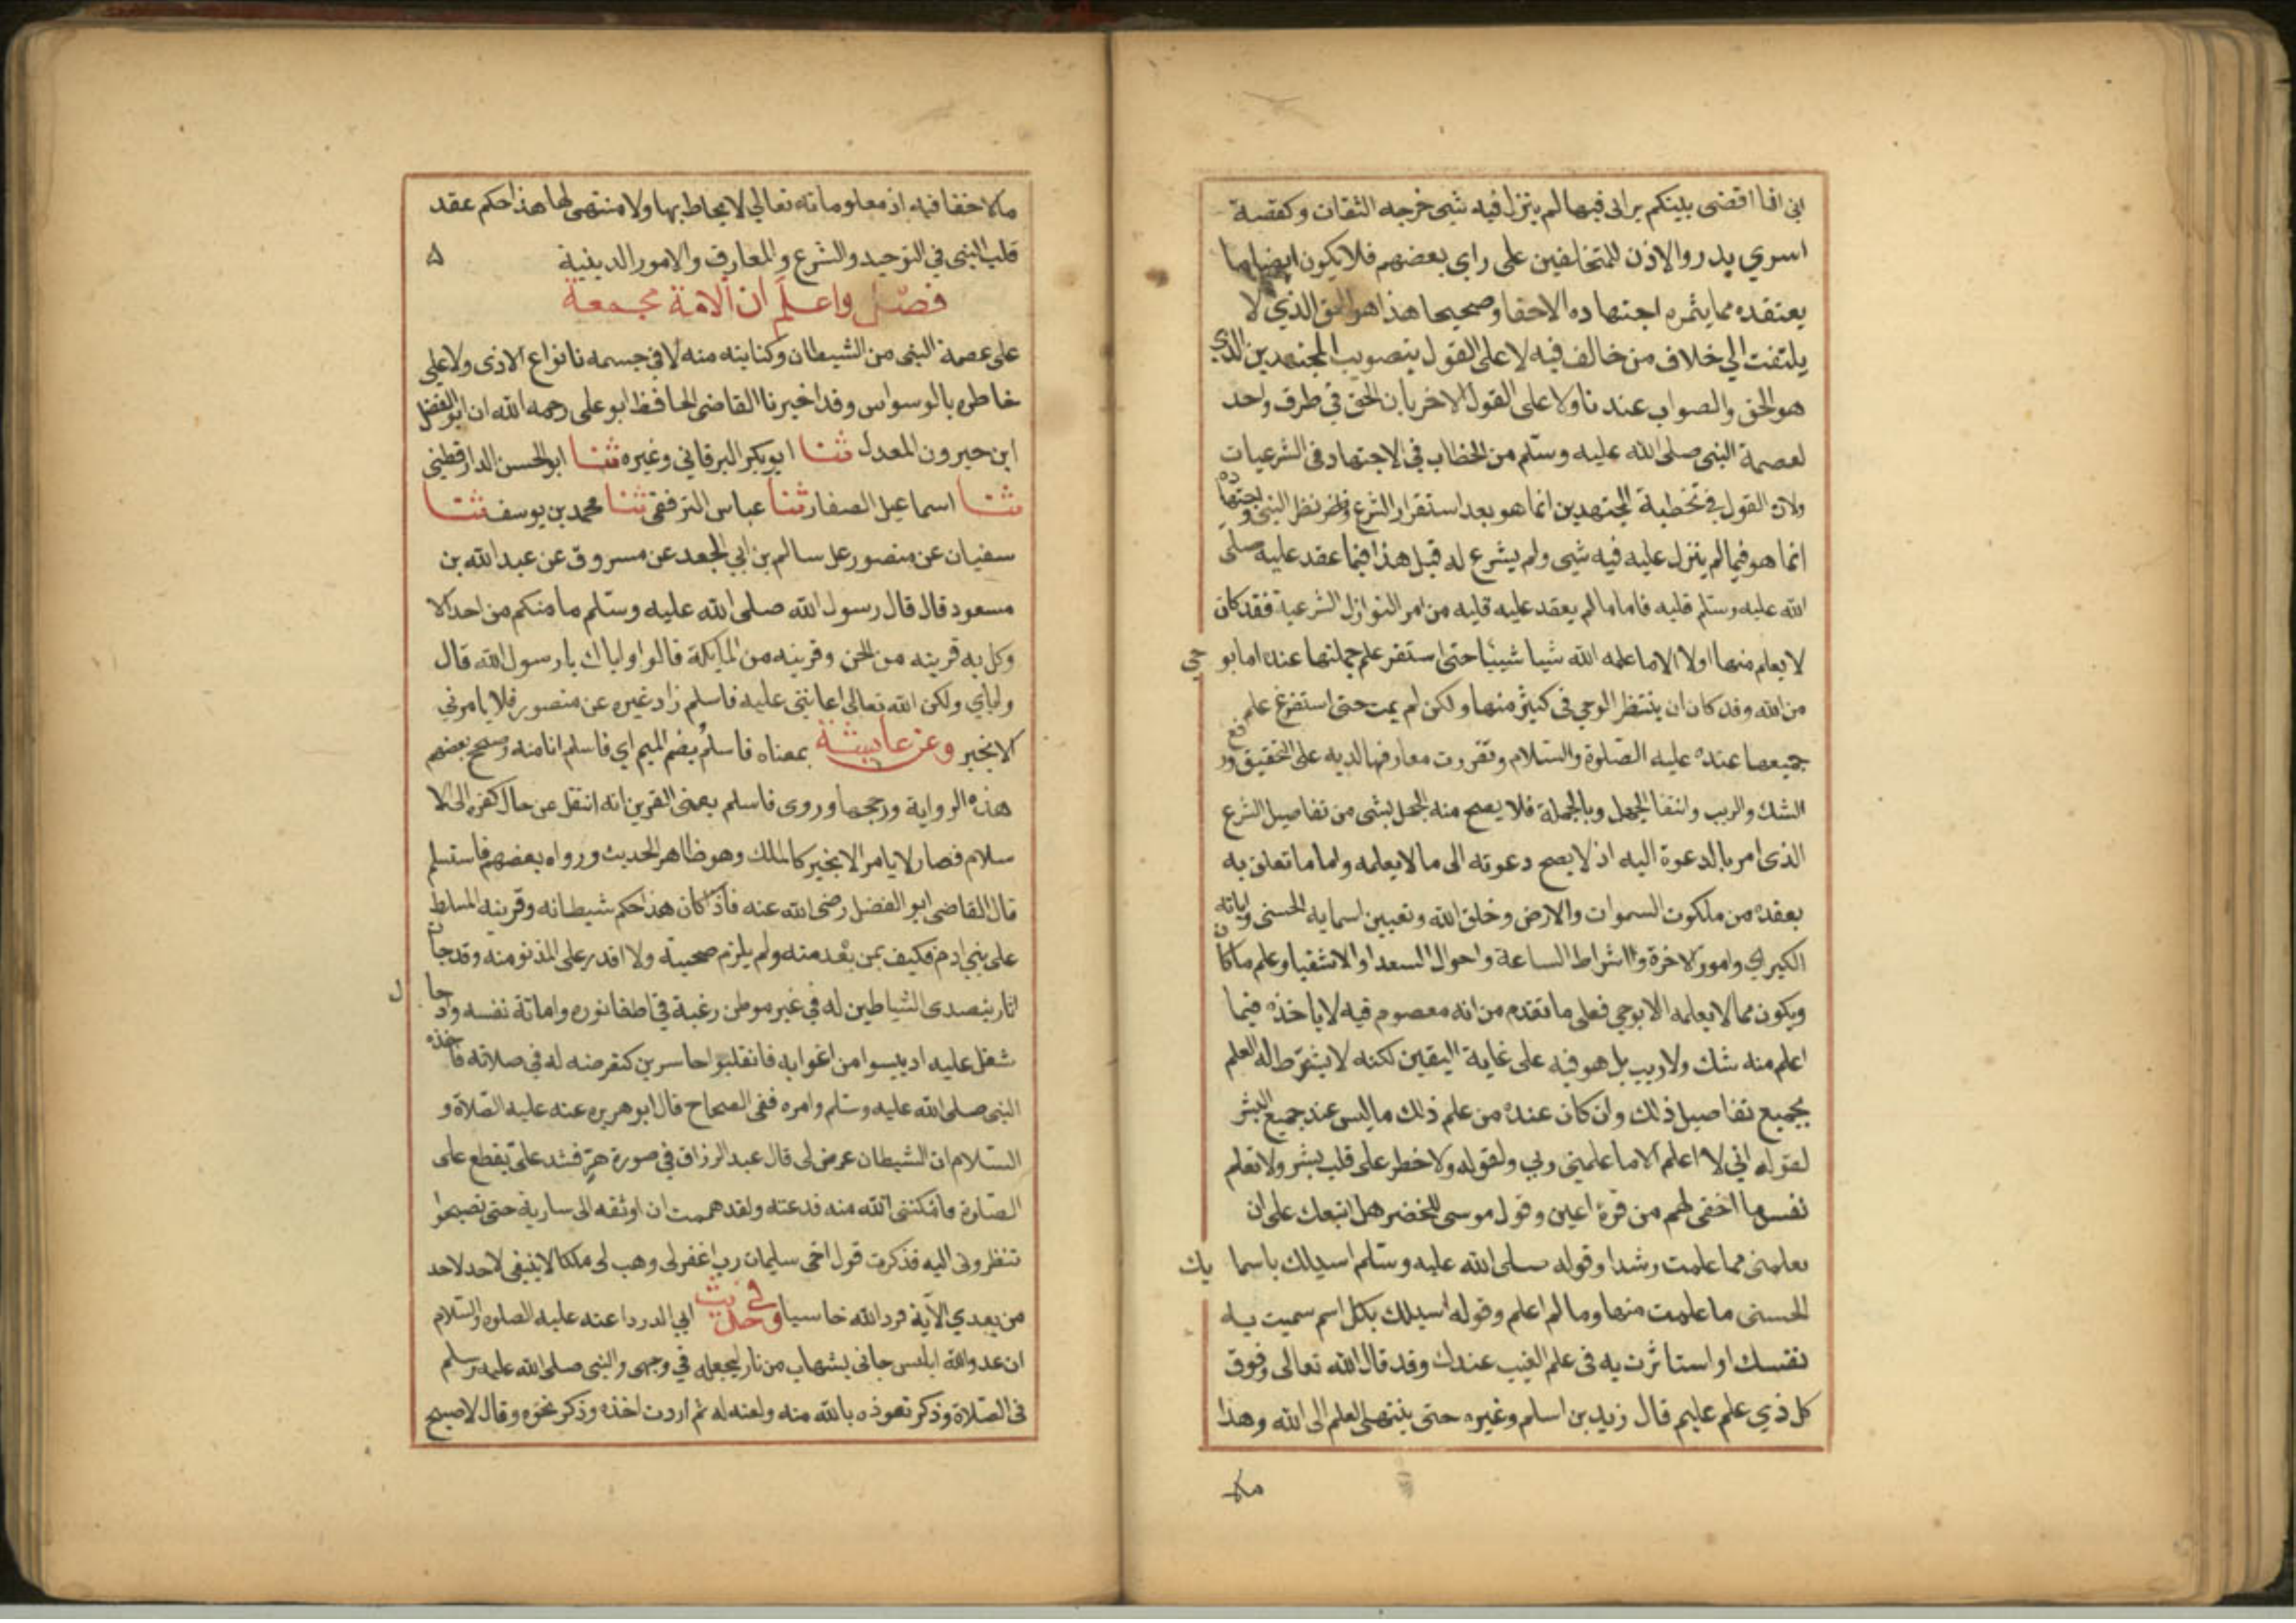 اني انما اقضى بينكم براى فيما لم ينزل فيه شئ خرجه الثقات وكقصة
اسري بدر والاذن للمتخلفين على راى بعضهم فلا يكون ايضا ما
يعتقده مما يثمره اجتهاده الاحقا وصحيحا هذا هو الحق الذي لا
يلتفت الي خلاف من خالف فيه لا على القول بتصويب المجتهدين الذي
هو الحق والصواب عندنا ولا على القول الاخر بان الحق في طرف واحد
لعصمة النبى صلى الله عليه وسلم من الخطاب في الاجتهاد فى الشرعيات
ولان القول في تخطية المجتهدين انما هو بعد استقرار الشرع ونظر النبى واجتهاده
انما هو فيما لم ينزل عليه فيه شئ ولم يشرع له قبل هذا فيما عقد عليه صلى
الله عليه وسلم قلبه فاما ما لم يعقد عليه قلبه من امر النوازل الشرعية فقد كان
لا يعلم منها اولا الا ما علمه الله شيا شيئا حتى استقر علم جملتها عنده اما بوحي
من الله وقد كان ان ينتظر الوحي فى كثير منها ولكن لم يمت حتى استفرغ علم
جميعها عنده عليه الصلوة والسلام وتقررت معارفها لديه على التحقيق ورفع
الشك والريب وانتفا الجهل وبالجملة فلا يصح منه الجهل بشى من تفاصيل الشرع
الذى امر بالدعوة اليه اذ لا يصح دعوته الى ما لا يعلمه واما ما تعلق به
بعقده من ملكوت السموات والارض وخلق الله وتعيين اسمايه الحسنى واياته
الكبري وامور الاخرة واشراط الساعة واحوال السعدا والاشقيا وعلم ما كان
ويكون مما لا يعلمه الا بوحي فعلى ما تقدم من انه معصوم فيه لا ياخذه فيما
اعلم منه شك ولا ريب بل هو فيه على غاية اليقين لكنه لا يشترط له العلم
بجميع تفاصيل ذلك وان كان عنده من علم ذلك ما ليس عند جميع البشر
لقوله اني لا اعلم الا ما علمنى ربي ولقوله ولا خطر على قلب بشر ولا تعلم
نفس ما اخفى لهم من قرة اعين وقول موسى للخضر هل اتبعك على ان
تعلمنى مما علمت رشدا وقوله صلى الله عليه وسلم اسيلك باسمايك
الحسنى ما علمت منها وما لم اعلم وقوله اسيلك بكل اسم سميت به
نفسك او استاثرت به فى علم الغيب عندك وقد قال الله تعالى وفوق
كل ذي علم عليم قال زيد بن اسلم وغيره حتى ينتهى العلم الى الله وهذا
مالا
مالا خفا فيه اذ معلوماته تعالي لا يحاط بها ولا منتهى لها هذا حكم عقد
قلب النبى في التوحيد والشرع والمعارف والامور الدينية ۵
فصل واعلم ان الامة مجمعة
على عصمة النبى من الشيطان وكفايته منه لا في جسمه بانواع الاذى ولا على
خاطره بالوسواس وقد اخبرنا القاضى الحافظ ابو على رحمه الله ان ابو الفضل
ابن خيرون المعدل ثنا ابو بكر البرقاني وغيره ثنا ابو الحسن الدارقطني
ثنا اسماعيل الصفار ثنا عباس الترفقى ثنا محمد بن يوسف ثنا
سفيان عن منصور عل سالم بن ابي الجعد عن مسروق عن عبد الله بن
مسعود قال قال رسول الله صلى الله عليه وسلم ما منكم من احد الا
وكل به قرينه من الجن وقرينه من الملايكة قالوا واياك يا رسول الله قال
واياي ولكن الله تعالى اعانني عليه فاسلم زاد غيره عن منصور فلا يامرني
الا بخير وعن عايشة بمعناه فاسلم بضم الميم اي فاسلم انا منه وصحح بعضهم
هذه الرواية ورجحها وروى فاسلم يعنى القرين انه انتقل عن حال كفره الى الا
سلام فصار لا يامر الا بخير كالملك وهو ظاهر الحديث ورواه بعضهم فاستسلم
قال القاضى ابو الفضل رضى الله عنه فاذا كان هذا حكم شيطانه وقرينه المسلط
على بني ادم فكيف بمن بعد منه ولم يلزم صحبته ولا اقدر على الدنو منه وقد جات
اثار بتصدى الشياطين له في غير موطن رغبة في اطفا نوره واماتة نفسه وادخال
شغل عليه اذ ييسوا من اغوايه فانقلبوا خاسرين كتعرضه له في صلاته فاخذه
النبى صلى الله عليه وسلم وامره ففى الصحاح قال ابو هريره عنه عليه الصلاة و
السلام ان الشيطان عرض لى قال عبد الرزاق في صورة هر فشد على يقطع على
الصلوة فامكننى الله منه فذعته ولقد هممت ان اوثقه الى سارية حتى تصبحوا
تنظرونى اليه فذكرت قول اخى سليمان رب اغفر لى وهب لى ملكا لا ينبغى لاحد لاحد
من بعدي الآية فرد الله خاسيا وفي حديث ابي الدردا عنه عليه الصلوة والسلام
ان عدو الله ابليس جانى بشهاب من نار ليجعله في وجهى والنبى صلى الله عليه وسلم
فى الصلاة وذكر تعوذه بالله منه ولعنه له ثم اردت اخذه وذكر نحوه وقال لاصبح